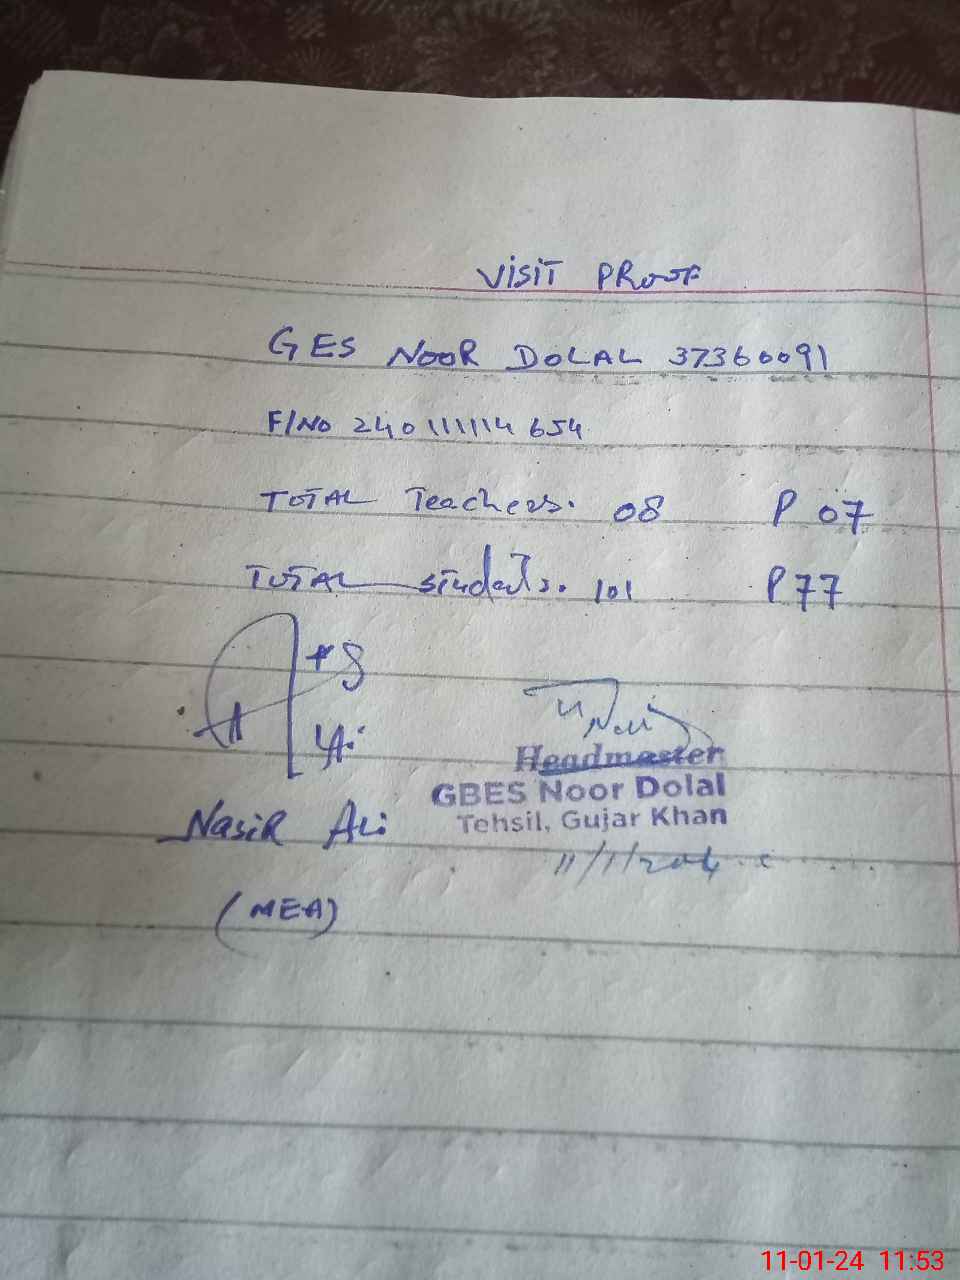 VISIT PROOF
GES NOOR DOLAL 37360091
F/NO 240111114654
TOTAL Teachers. 08 P 07
TOTAL students. 101 P 77
Headmaster
GBES Noor Dolal
Tehsil, Gujar Khan
NASIR ALi
11/1/2024
(MEA)
11-01-24 11:53